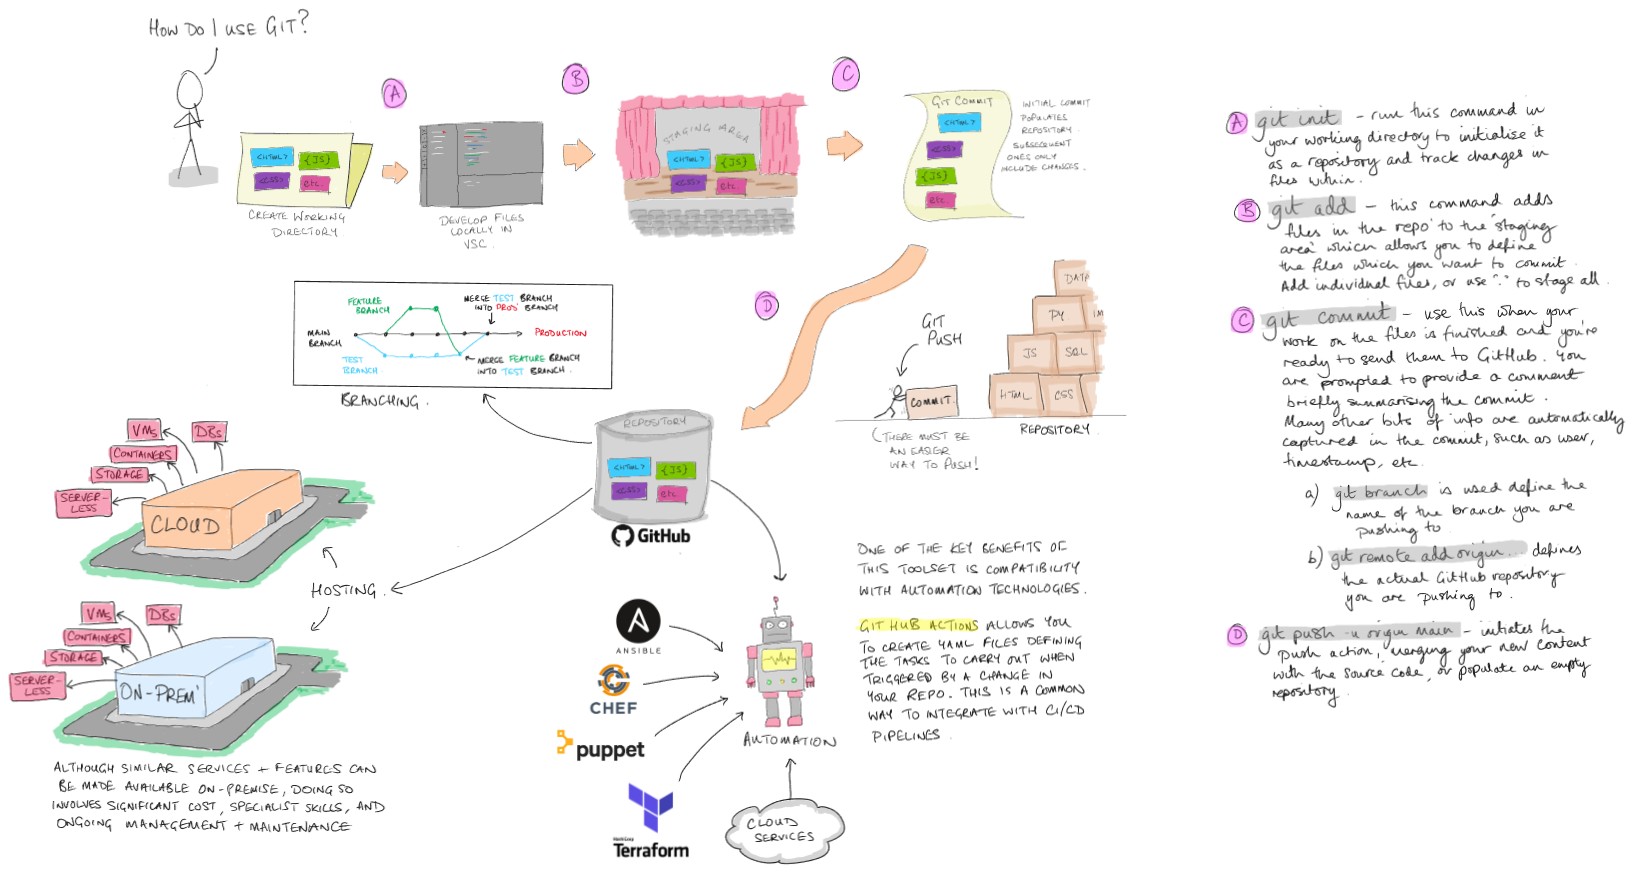 HOW DO I USE GIT?
A
B
C
<HTML>
{JS}
<CSS>
etc.
CREATE WORKING
DIRECTORY
DEVELOP FILES
LOCALLY IN
VSC.
STAGING AREA
<HTML>
{JS}
<CSS>
etc.
GIT COMMIT
<HTML>
<CSS>
{JS}
etc.
INITIAL COMMIT
POPULATES
REPOSITORY.
SUBSEQUENT
ONES ONLY
INCLUDE CHANGES.
D
GIT
PUSH
COMMIT.
(THERE MUST BE
AN EASIER
WAY TO PUSH!
DATA
PY
IM
JS
SQL
HTML
CSS
REPOSITORY.
FEATURE
BRANCH
MERGE TEST BRANCH
INTO 'PROD' BRANCH
MAIN
BRANCH
PRODUCTION
TEST
BRANCH
MERGE FEATURE BRANCH
INTO TEST BRANCH.
BRANCHING.
REPOSITORY
<HTML>
{JS}
<CSS>
etc.
GitHub
VMs
DBs
CONTAINERS
STORAGE
SERVER-
LESS
CLOUD
HOSTING.
VMs
DBs
CONTAINERS
STORAGE
SERVER-
LESS
ON-PREM'
ALTHOUGH SIMILAR SERVICES + FEATURES CAN
BE MADE AVAILABLE ON-PREMISE, DOING SO
INVOLVES SIGNIFICANT COST, SPECIALIST SKILLS, AND
ONGOING MANAGEMENT + MAINTENANCE
A
ANSIBLE
CHEF
puppet
HashiCorp
Terraform
AUTOMATION
CLOUD
SERVICES
ONE OF THE KEY BENEFITS OF
THIS TOOLSET IS COMPATIBILITY
WITH AUTOMATION TECHNOLOGIES.
GIT HUB ACTIONS ALLOWS YOU
TO CREATE YAML FILES DEFINING
THE TASKS TO CARRY OUT WHEN
TRIGGERED BY A CHANGE IN
YOUR REPO. THIS IS A COMMON
WAY TO INTEGRATE WITH CI/CD
PIPELINES.
A git init - run this command in
your working directory to initialise it
as a repository and track changes in
files within.
B git add - this command adds
files in the repo to the 'staging
area' which allows you to define
the files which you want to commit.
Add individual files, or use "." to stage all.
C git commit - use this when your
work on the files is finished and you're
ready to send them to GitHub. You
are prompted to provide a comment
briefly summarising the commit.
Many other bits of info are automatically
captured in the commit, such as user,
timestamp, etc.
a) git branch is used define the
name of the branch you are
pushing to.
b) git remote add origin... defines
the actual GitHub repository
you are pushing to.
D git push -u origin main - initiates the
'push action', merging your new content
with the source code, or populate an empty
repository.